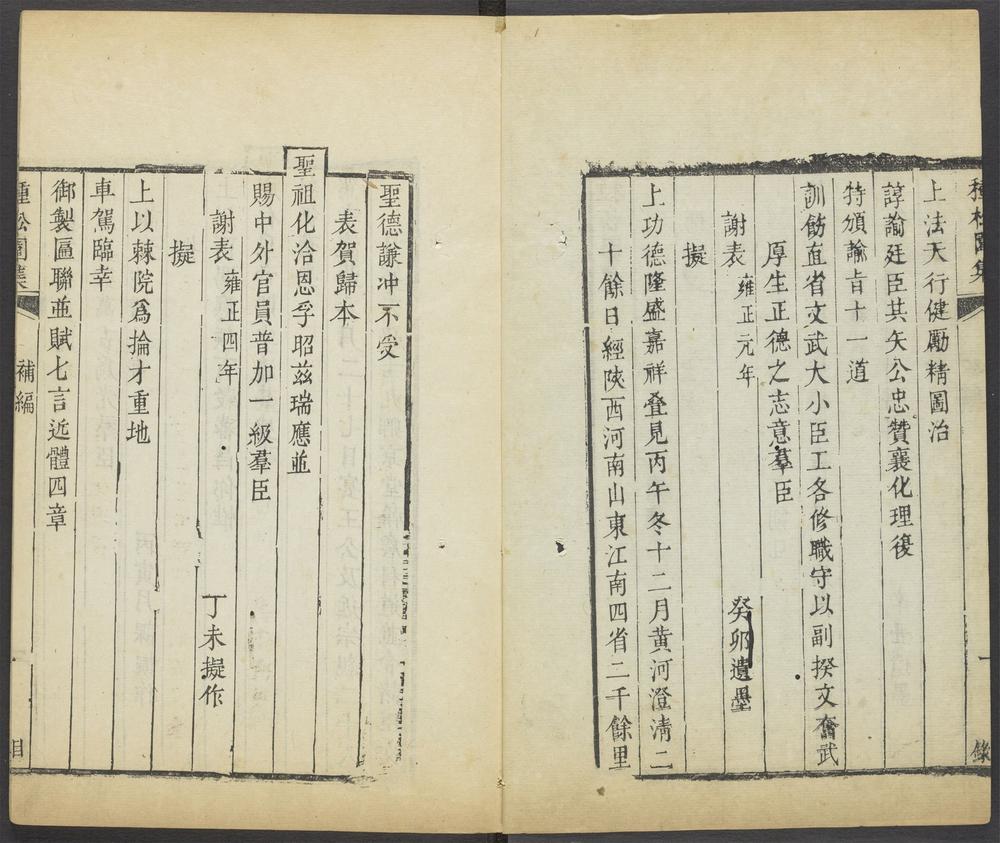 種松園集
一
錄
上法天行健勵精圖治
諄諭廷臣其矢公忠贊襄化理復
特頒諭旨十一道
訓飭直省文武大小臣工各修職守以副揆文奮武
厚生正德之志意羣臣
謝表雍正元年 癸卯遺墨
擬
上功德隆盛嘉祥叠見丙午冬十二月黃河澄清二
十餘日經陝西河南山東江南四省二千餘里
聖德謙冲不受
表賀歸本
聖祖化洽恩孚昭茲瑞應並
賜中外官員普加一級羣臣
謝表雍正四年 丁未擬作
擬
上以棘院爲掄才重地
車駕臨幸
御製匾聯並賦七言近體四章
種松園集
補編
目